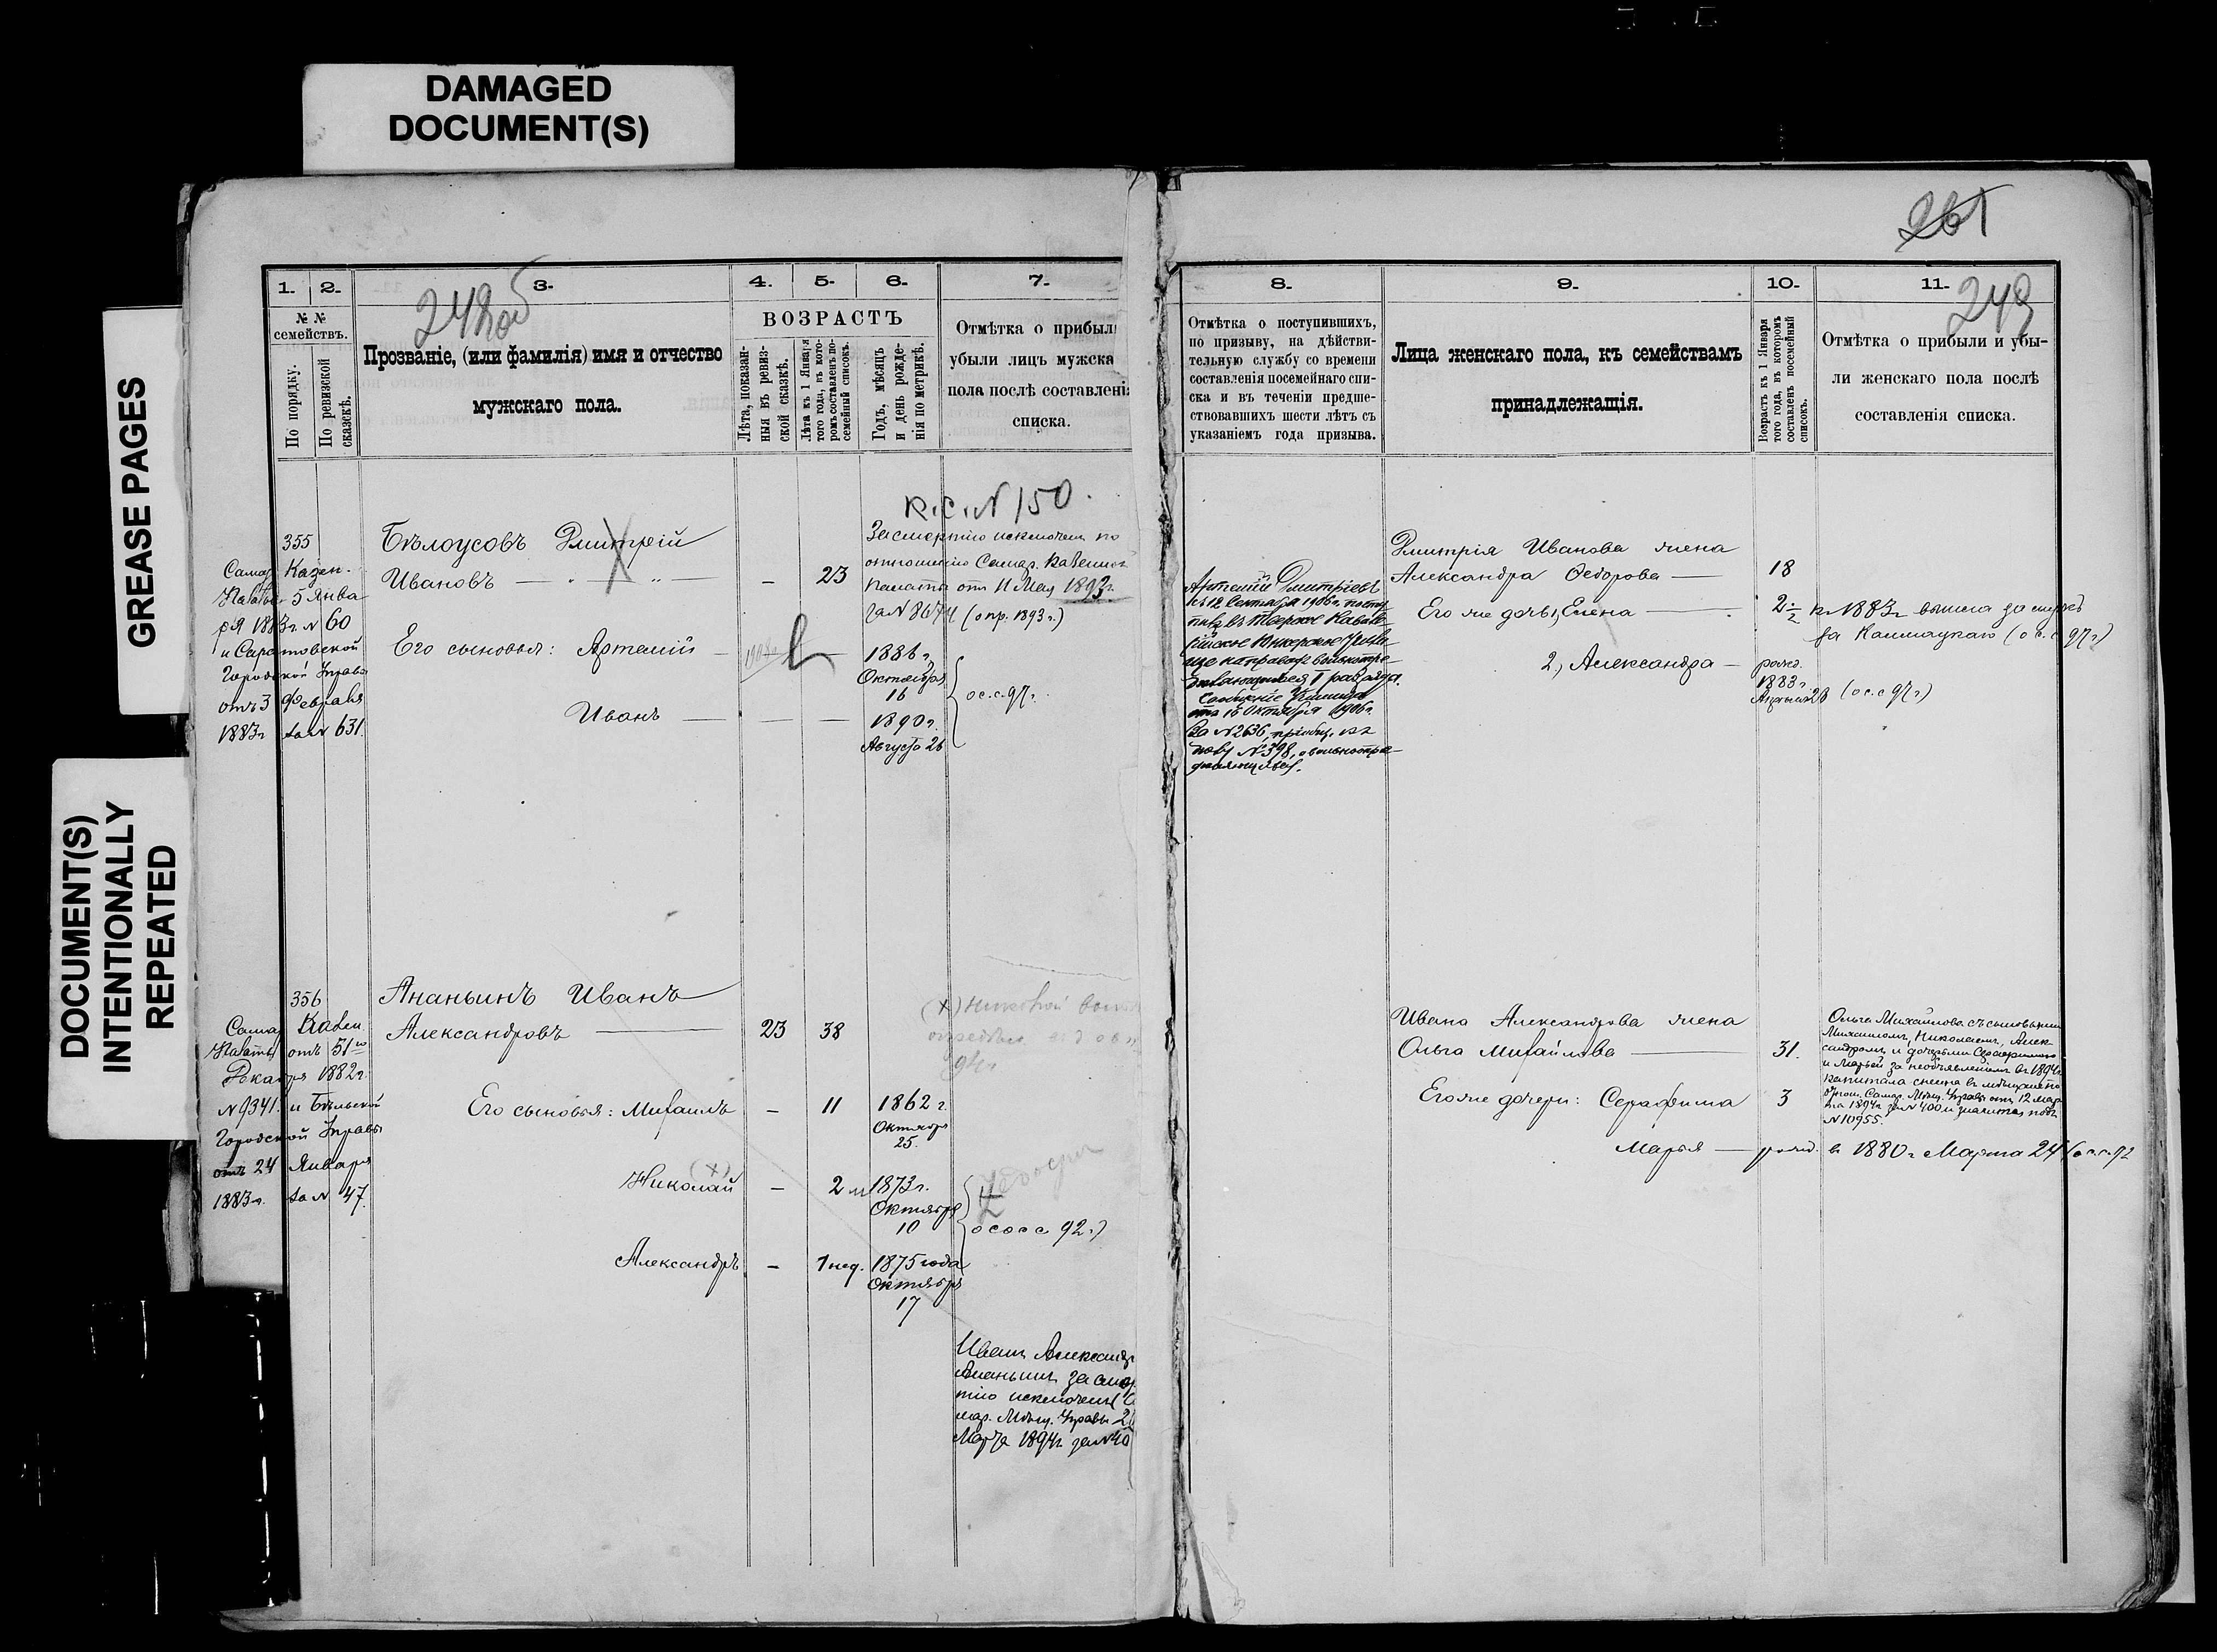 DAMAGED
DOCUMENT(S)
GREASE PAGES
DOCUMENT(S)
INTENTIONALLY
REPEATED
261
1.
2.
3.
4.
5.
6.
7.
242об
№ №
семействъ.
По порядку.
По ревизской
сказкѣ.
Прозваніе, (или фамилія) имя и отчество
мужскаго пола.
ВОЗРАСТЪ
Лѣта, показан-
ныя въ ревиз-
ской сказкѣ.
Лѣта къ 1 Января
того года, въ кото-
ромъ составленъ по-
семейный списокъ.
Годъ, мѣсяцъ
и день рожде-
нія по метрикѣ.
Отмѣтка о прибыл
убыли лицъ мужска
пола послѣ составлені
списка.
К.С. N 150.
355
Самар Казен.
Палаты 5 Янва
ря 1883 г. N 60
и Саратовской
Городской Управы
отъ 3 Февраля
1883 г за N 631.
Бѣлоусовъ Дмитрій
Ивановъ — 23
За смертію исключенъ по
отношенію Самар. Казенной
Палаты отъ 11 Мая 1893 г.
за N 8674 (о пр. 1893 г.)
Его сыновья: Артемій
1886 г.
Октября
16
ос. с. 97 г.
Иванъ
1890 г.
Августа 26
356
Самар Казен
Палаты отъ 31го
Декабря 1882 г.
N 9341. и Бѣльской
Городской Управы
отъ 24 Января
1883 г. за N 47.
Ананьинъ Иванъ
Александровъ — 23 38
Его сыновья: Михаилъ — 11
1862 г.
Октября
25.
(х)
Николай — 2
1873 г.
Октября
10
о с о с с 92 г.)
Александръ — 1 нед.
1875 года
Октября
17
Иванъ Александр
Ананьинъ за смер
тію исключенъ
мар. Мѣщ. Управы
Марта 1894 г за N 40
8.
9.
10.
11.
243
Отмѣтка о поступившихъ,
по призыву, на дѣйстви-
тельную службу со времени
составленія посемейнаго спи-
ска и въ теченіи предше-
ствовавшихъ шести лѣтъ съ
указаніемъ года призыва.
Лица женскаго пола, къ семействамъ
принадлежащія.
Возрастъ къ 1 Января
того года, въ которомъ
составленъ посемейный
списокъ.
Отмѣтка о прибыли и убы-
ли женскаго пола послѣ
составленія списка.
Артемій Дмитріевъ
12 Сентября 1906 г. посту
въ Тверское Кавале-
рійское Юнкерское Учили-
ще на правахъ вольноопре-
дѣляющагося I разряда.
Сообщеніе Училища
отъ 15 Октября 1906 г.
за N 2636,
N 398, о вольноопре-
Дмитрія Иванова жена
Александра Ѳедорова — 18
Его же дочь 1, Елена — 2 1/2
1883 г вышла за мужъ
за
2, Александра —
рожд.
1883 г.
Апрѣля 28
(о с. с 97 г)
Ивана Александрова жена
Ольга Михайлова — 31.
Его же дочери: Серафима 3
Марья — рожд. въ 1880 г Марта 24 (о с. с. 92
Ольга Михайлова съ сыновьями
Михаиломъ, Николаемъ, Алек-
сандромъ и дочерьми Серафимою
и Марьей за необъявленіемъ въ 1894 г.
капитала
Самар. Мѣщ. Управы отъ 12 мар-
та 1894 г за N 400 и
N 10955.